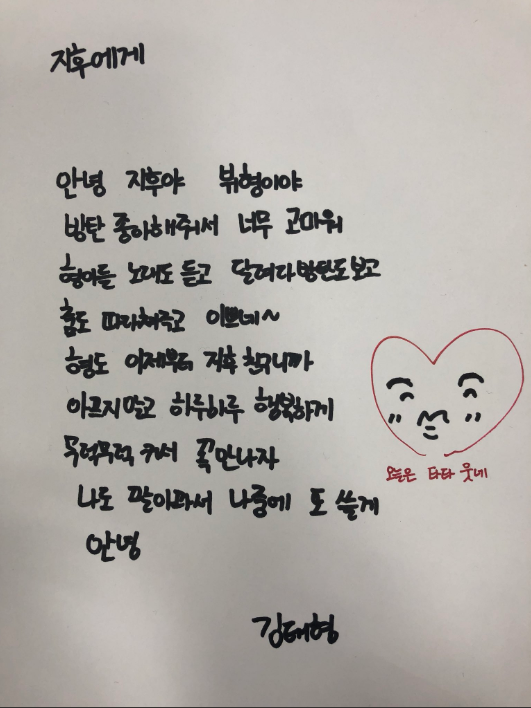 지후에게
안녕 지후야 뷔형이야
방탄 좋아해줘서 너무 고마워
형아들 노래도 듣고 달려라방탄도 보고
춤도 따라춰주고 이쁘네~
형도 이제부터 지후 친구니까
아프지말고 하루하루 행복하게
무럭무럭 커서 꼭 만나자
나도 팔아파서 나중에 또 쓸게
안녕
오늘은 타타 웃네
김태형